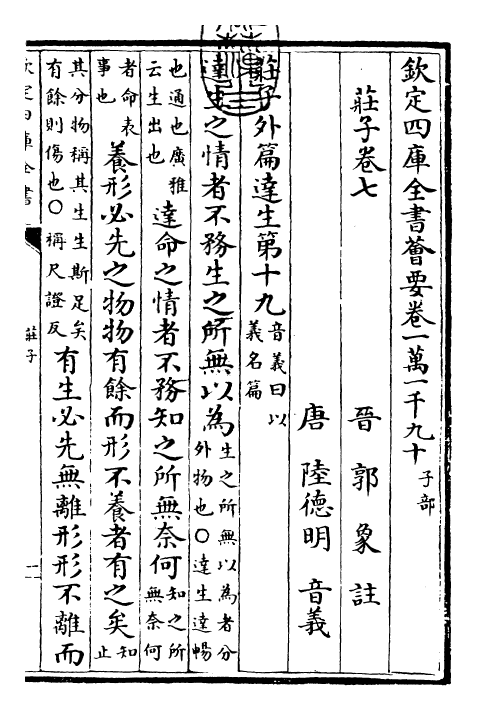 欽定四庫全書薈要卷一萬一千九十 子部
莊子卷七 晉 郭象 註
唐 陸德明 音義
莊子外篇達生第十九 音義曰以義名篇
達生之情者不務生之所無以為 生之所無以為者分外物也○達生達暢
也通也廣雅云生出也 達命之情者不務知之所無奈何 知之所無奈何
者命表事也 養形必先之物物有餘而形不養者有之矣 知止
其分物稱其生生斯足矣有餘則傷也○稱尺證反 有生必先無離形形不離而
定四庫全書 莊子